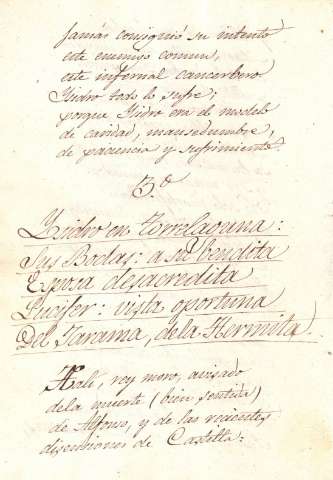 Jamás consiguió su intento
este enemigo comun,
este infernal cancerbero
Ysidro todo lo sufre;
porque Ysidro era el modelo
de caridad, mansedumbre,
de paciencia y sufrimiento.
3.º
Ysidro en Torrelaguna:
Sus Bodas: a su bendita
Esposa desacredita
Lucifer: vista oportuna
Del Jarama, de la Hermita.
Halí, rey moro, avisado
de la muerte (bien sentida)
de Alfonso, y de las recientes
disenciones de Castilla: